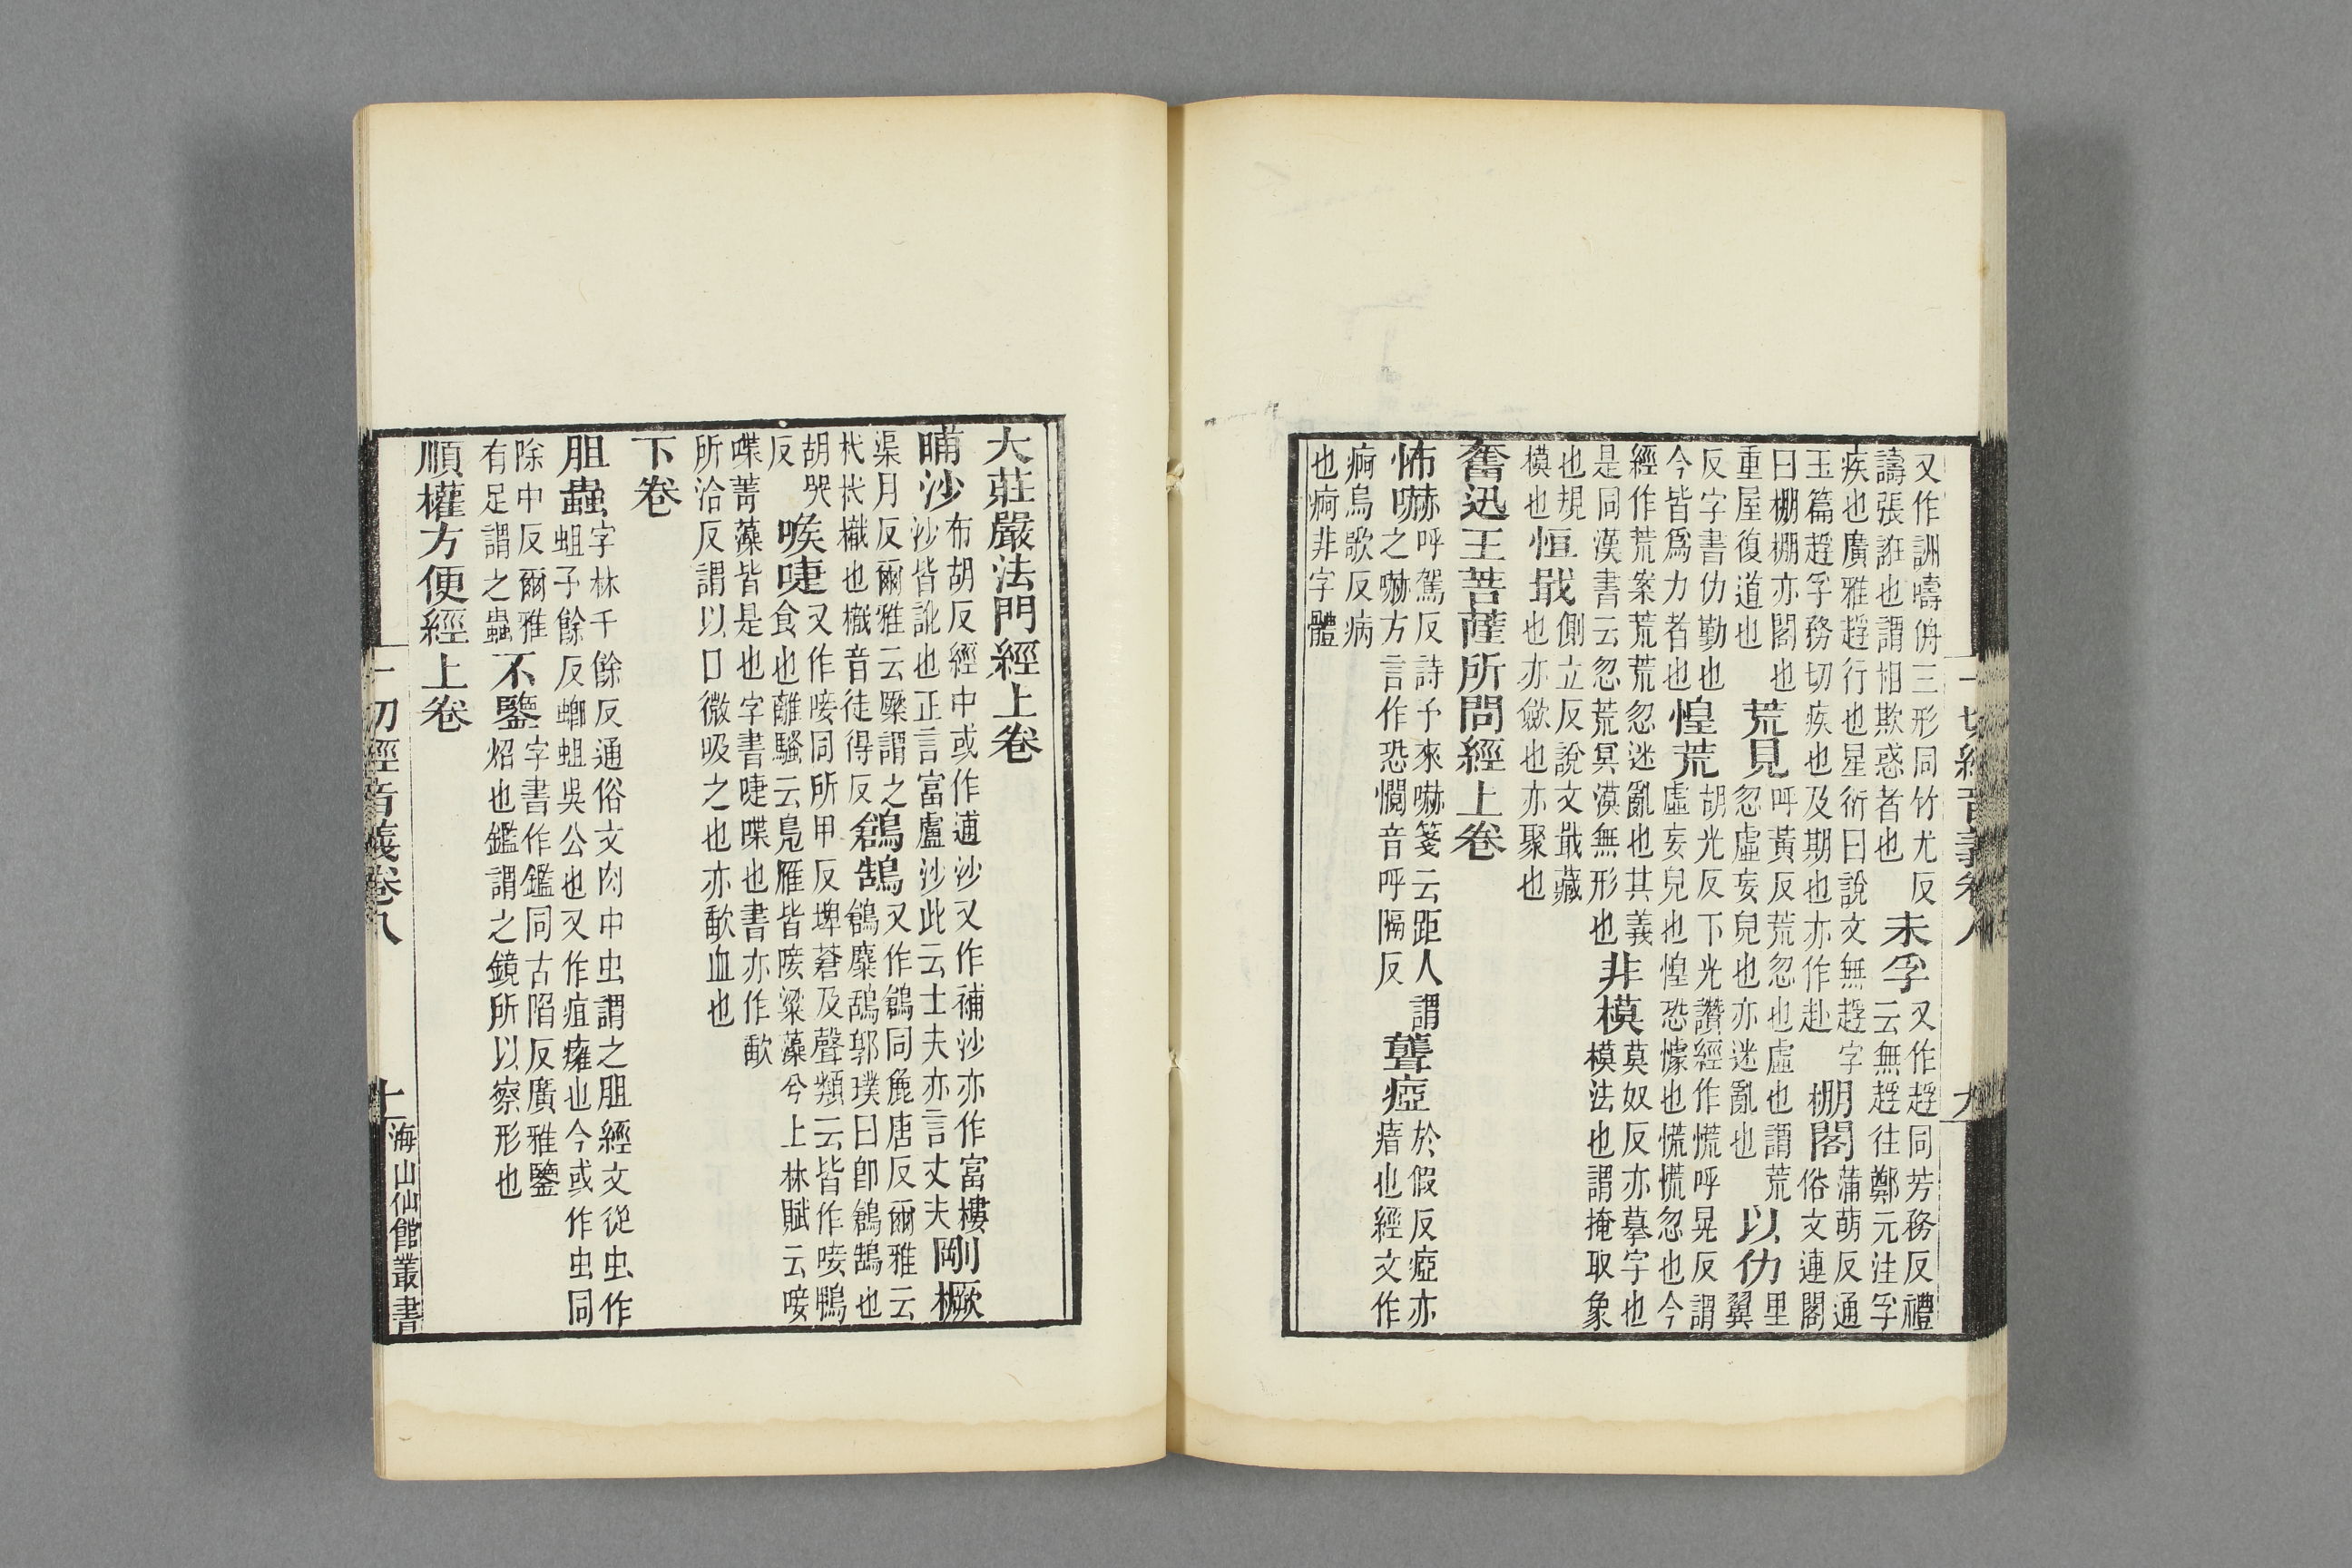 又作詶嚋侜三形同竹尤反
譸張誑也謂相欺惑者也
未孚
又作䞯同芳務反禮
云無䞯往鄭元注孚
疾也廣雅䞯行也星衍曰說文無䞯字
玉篇䞯孚務切疾也及期也亦作赴
棚閣
蒲萌反通
俗文連閣
曰棚棚亦閣也
重屋復道也
荒見
呼黃反荒忽也虛也謂荒
忽虛妄皃也亦迷亂也
以仂
里
翼
反字書仂勤也
今皆爲力者也
惶荒
胡光反下光讚經作慌呼晃反謂
虛妄皃也惶恐懅也慌慌忽也今
經作荒案荒荒忽迷亂也其義
是同漢書云忽荒冥漠無形也
非模
莫奴反亦摹字也
模法也謂掩取象
也規
模也
恒戢
側立反說文戢藏
也亦斂也亦聚也
奮迅王菩薩所問經上卷
怖嚇
呼駕反詩予來嚇箋云距人謂
之嚇方言作恐鬩音呼隔反
聾瘂
於假反瘂亦
瘖也經文作
痾烏歌反病
也痾非字體
一切經音義卷八
九
大莊嚴法門經上卷
晡沙
布胡反經中或作逋沙又作補沙亦作富樓
沙皆訛也正言富盧沙此云士夫亦言丈夫
剛橛
渠月反爾雅云橜謂之
杙杙樴也樴音徒得反
鶬鴰
又作鶬同麁唐反爾雅云
鶬麋鴰郭璞曰卽鶬鴰也
胡哭
反
唼啑
又作㗱同所甲反埤蒼及聲類云皆作唼鴨
食也離騷云鳧雁皆唼粱藻兮上林賦云唼
喋菁藻皆是也字書啑喋也書亦作歃
所洽反謂以口微吸之也亦歃血也
下卷
胆蟲
字林千餘反通俗文肉中虫謂之胆經文從虫作
蛆子餘反蝍蛆吳公也又作疽癰也今或作虫同
除中反爾雅
有足謂之蟲
不鑒
字書作鑑同古陷反廣雅鑒
炤也鑑謂之鏡所以察形也
順權方便經上卷
一切經音義卷八
十
海山仙館叢書